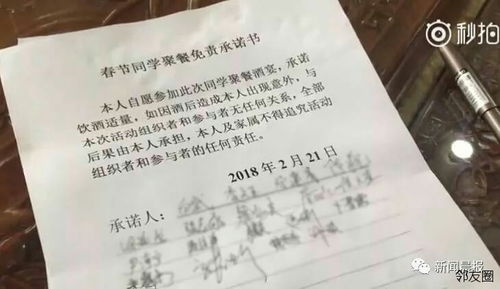 秒拍
春节同学聚餐免责承诺书
本人自愿参加此次同学聚餐酒宴，承诺
饮酒适量，如因酒后造成本人出现意外，与
本次活动组织者和参与者无任何关系，全部
后果由本人承担，本人及家属不得追究活动
组织者和参与者的任何责任。
2018年2月21日
承诺人：
新闻晨报
邻友圈